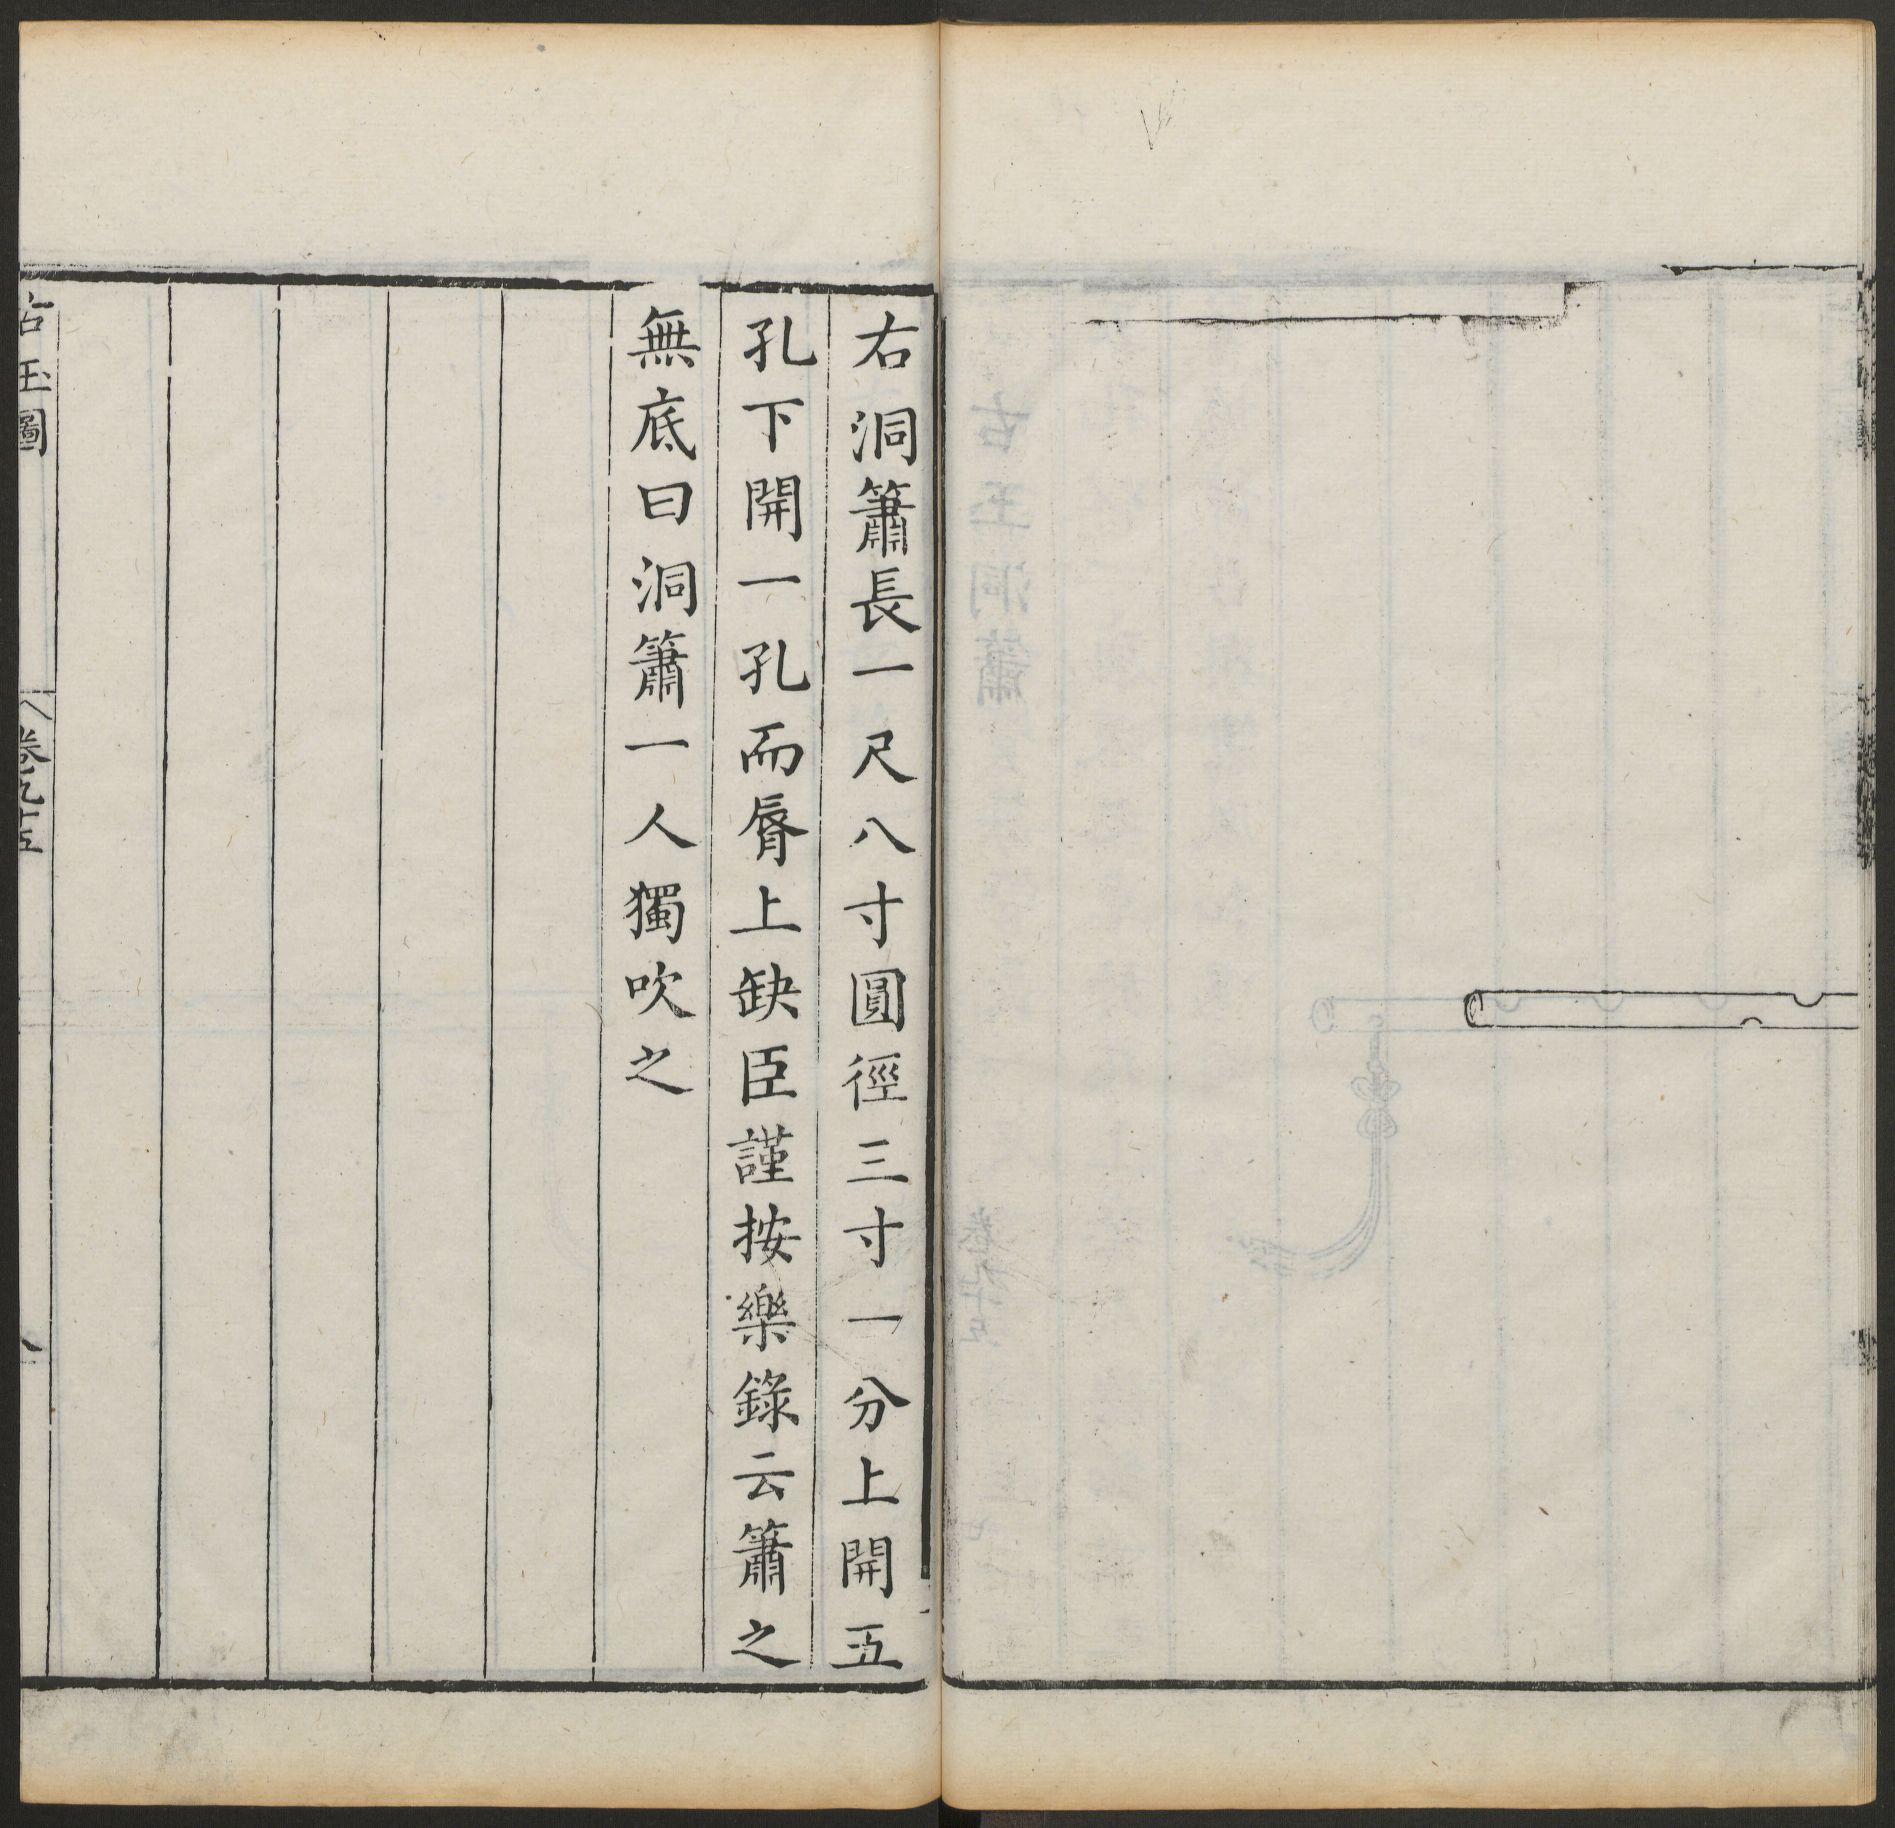 右洞簫長一尺八寸圓徑三寸一分上開五
孔下開一孔而脣上缺臣謹按樂錄云簫之
無底曰洞簫一人獨吹之
古玉圖
卷九十五
八